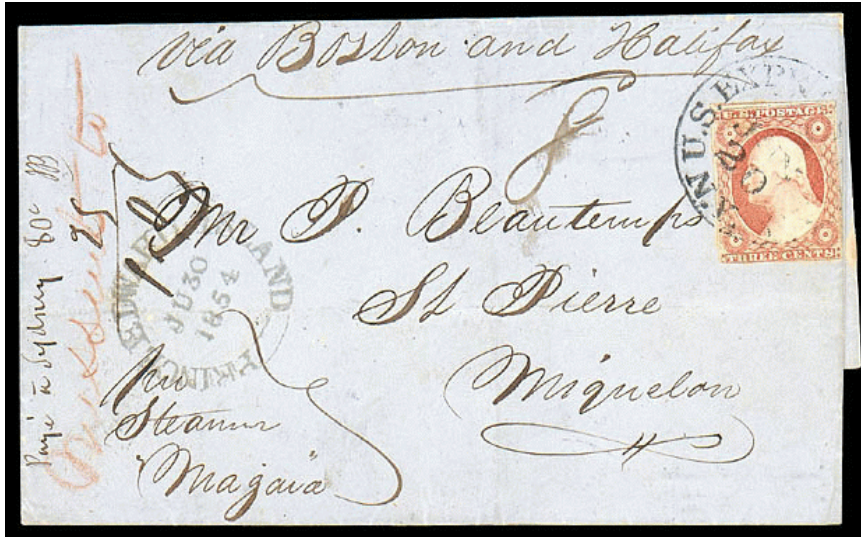 via Boston and Halifax
8
U.S. EXP
U.S. POSTAGE
THREE CENTS
Mr P. Beautemps
St Pierre
Miquelon
PRINCE EDWARD ISLAND
JU 30
1854
per
Steamer
"Magaïa"
Payé à Sydney 80c
25